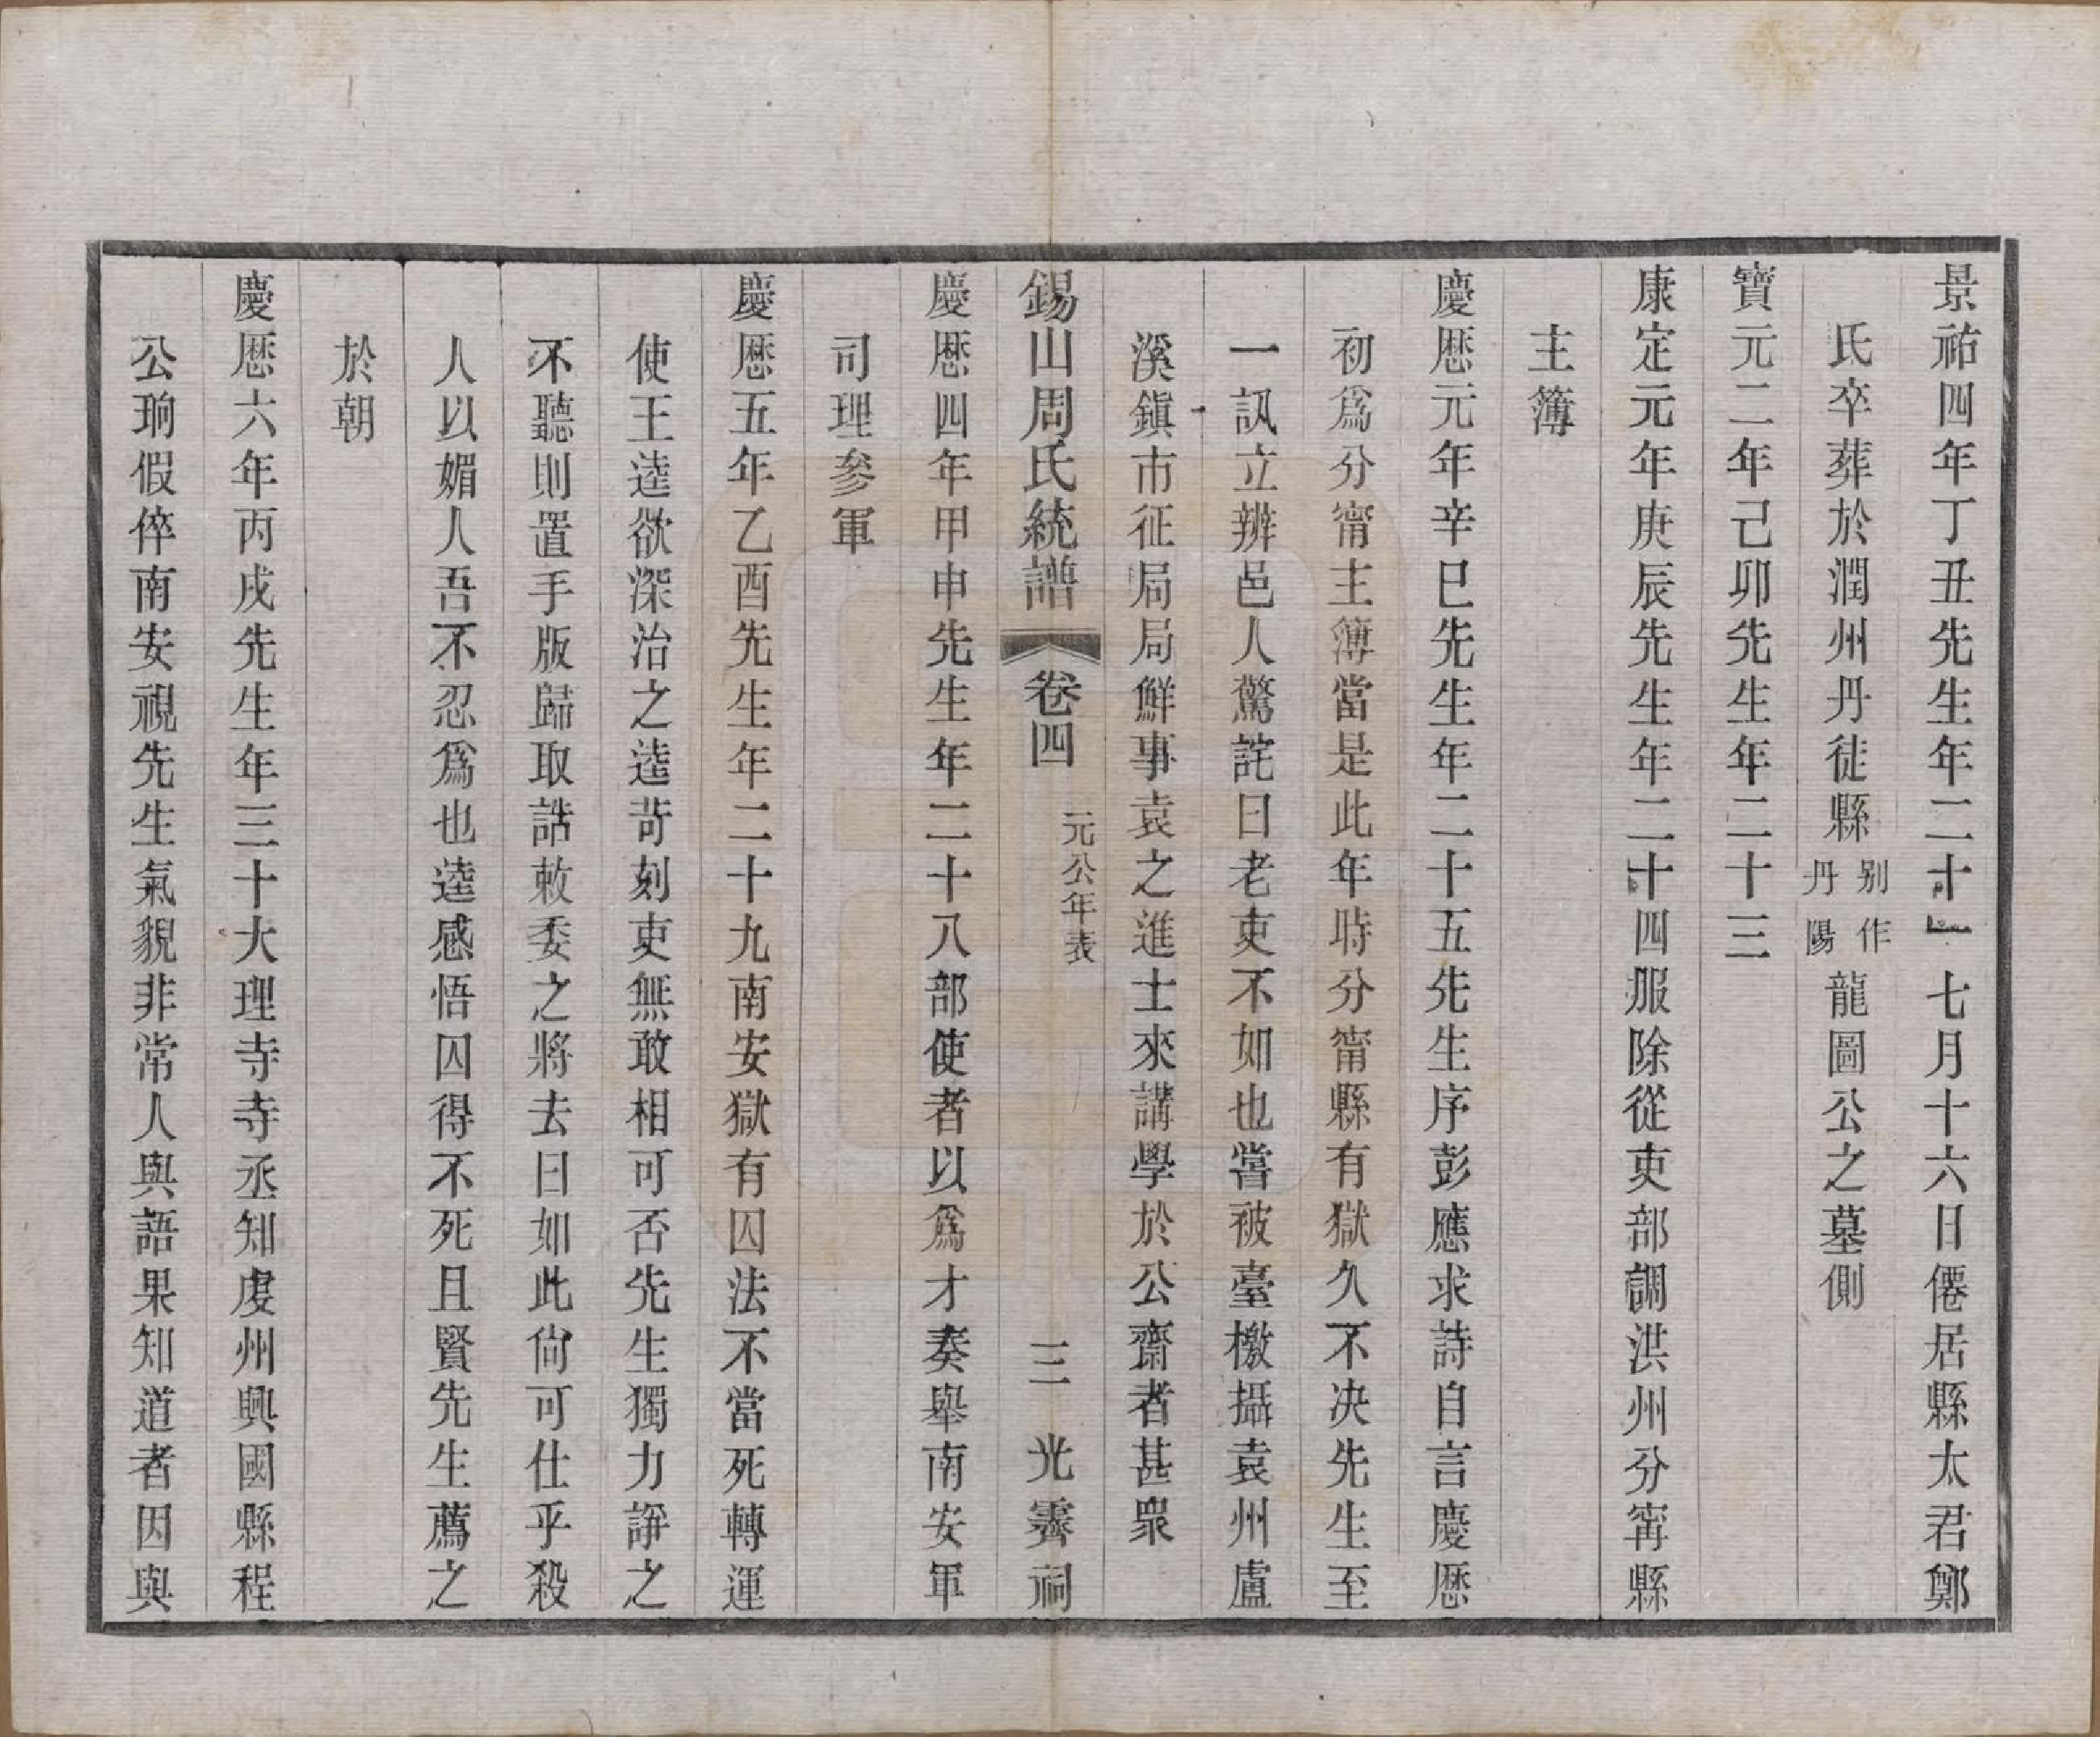 景祐四年丁丑先生年二十一七月十六日僊居縣太君鄭
氏卒葬於潤州丹徒縣別作丹陽龍圖公之墓側
寶元二年己卯先生年二十三
康定元年庚辰先生年二十四服除從吏部調洪州分甯縣
主簿
慶厯元年辛巳先生年二十五先生序彭應求詩自言慶厯
初爲分甯主簿當是此年時分甯縣有獄久不决先生至
一訊立辨邑人驚詫曰老吏不如也嘗被臺檄攝袁州盧
溪鎭市征局局鮮事袁之進士來講學於公齋者甚衆
錫山周氏統譜 卷四 元公年表 三 光霽祠
慶厯四年甲申先生年二十八部使者以爲才奏舉南安軍
司理參軍
慶厯五年乙酉先生年二十九南安獄有囚法不當死轉運
使王逵欲深治之逵苛刻吏無敢相可否先生獨力諍之
不聽則置手版歸取誥敕委之將去曰如此尙可仕乎殺
人以媚人吾不忍爲也逵感悟囚得不死且賢先生薦之
於朝
慶厯六年丙戌先生年三十大理寺寺丞知虔州興國縣程
公珦假倅南安視先生氣貌非常人與語果知道者因與